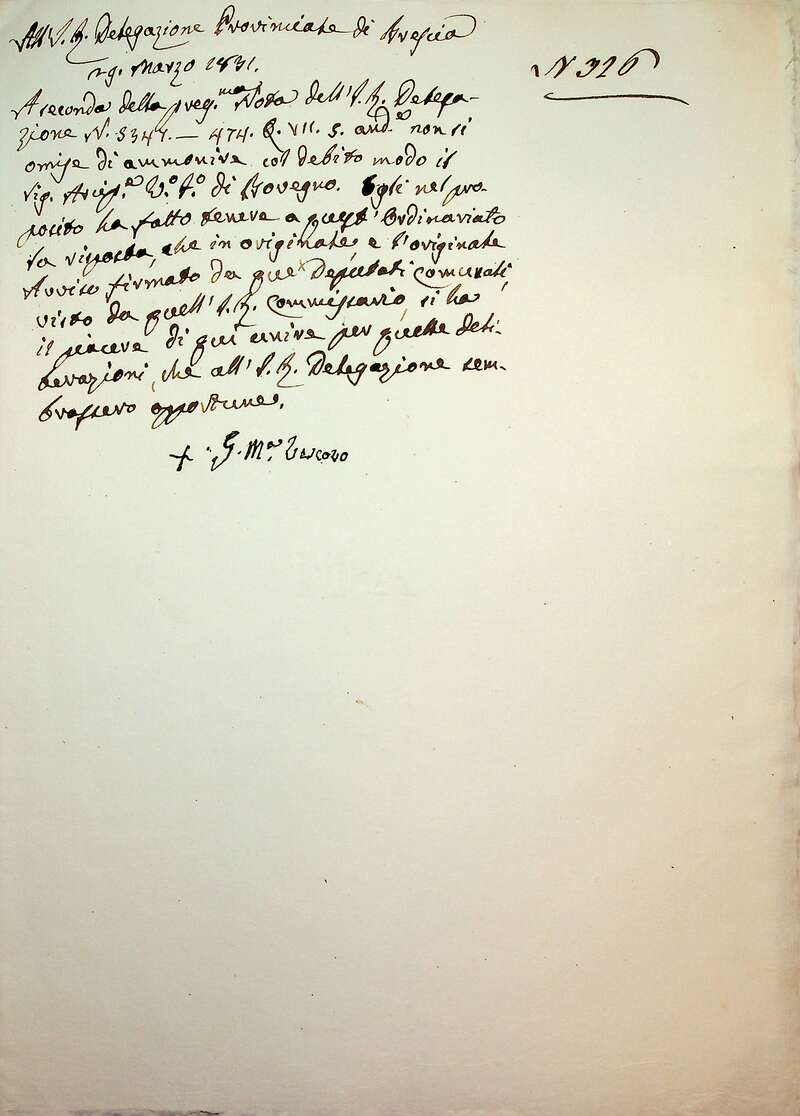 All' I. R. Delegazione Provinciale di Brescia
29. Marzo 1831.
N 326
A seconda della preg.ma Nota dell' I. R. Delega-
zione N. 5347. — 474. R. VII. 5. and.e non si
omise di ammonire col debito modo il
Sig. Arcip.e V.o F.o di Bovegno. Egli nel pro-
posito ha fatto tenere a quest' Ordinariato
la risposta, che in originale, e l'originale
Avviso firmato da que' Deputati comunali,
visto da quell' I. R. Commissario, si ha
il piacere di qui unire per quelle deli-
berazioni, che all' I. R. Delegazione sem-
brassero opportune.
+ G. M.a Vescovo